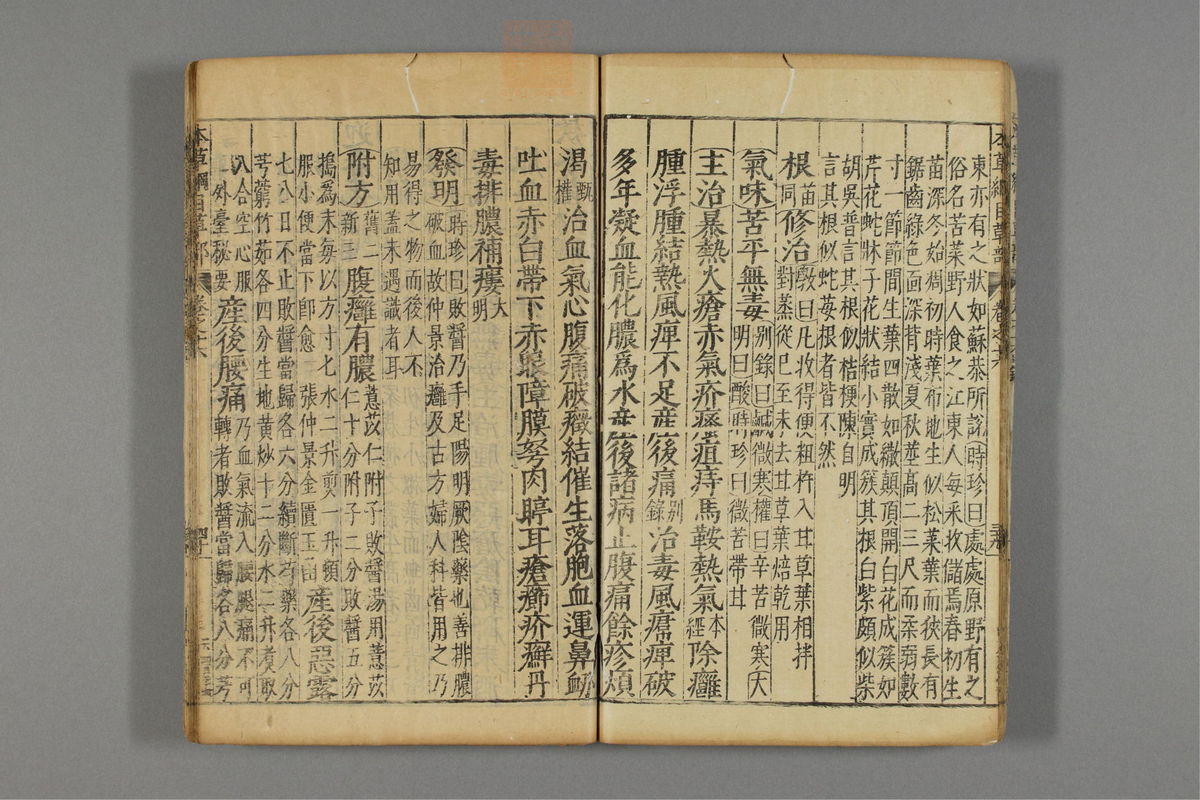 東亦有之狀如蘇恭所説時珍曰處處原野有之
俗名苦菜野人食之江東人每采收儲焉春初生
苗深冬始凋初時葉布地生似菘菜葉而狹長有
鋸齒綠色面深背淺夏秋莖高二三尺而柔弱數
寸一節節間生葉四散如繖顛頂開白花成簇如
芹花蛇牀子花狀結小實成簇其根白紫頗似柴
胡吳普言其根似桔梗陳自明
言其根似蛇莓根者皆不然
根苗同修治斅曰凡收得便粗杵入甘草葉相拌
對蒸從巳至未去甘草葉焙乾用
氣味苦平無毒别錄曰鹹微寒權曰辛苦微寒大
明曰酸時珍曰微苦帶甘
主治暴熱火瘡赤氣疥瘙疽痔馬鞍熱氣本經除癰
腫浮腫結熱風痺不足産後痛别錄治毒風㿏痺破
多年凝血能化膿爲水産後諸病止腹痛餘疹煩
渴甄權治血氣心腹痛破癥結催生落胞血運鼻衄
吐血赤白帶下赤眼障膜努肉聤耳瘡癤疥癬丹
毒排膿補瘻大明
發明時珍曰敗醬乃手足陽明厥陰藥也善排膿
破血故仲景治癰及古方婦人科皆用之乃
易得之物而後人不
知用蓋未遇識者耳
附方舊二新三腹癰有膿薏苡仁附子敗醬湯用薏苡
仁十分附子二分敗醬五分
搗爲末每以方寸七水二升煎一升頓
服小便當下卽愈張仲景金匱玉函産後惡露
七八日不止敗醬當歸各六分續斷芍藥各八分
芎藭竹茹各四分生地黄炒十二分水二升煮取
八合空心服
外臺秘要産後腰痛乃血氣流入腰腿痛不可
轉者敗醬當歸各八分芎